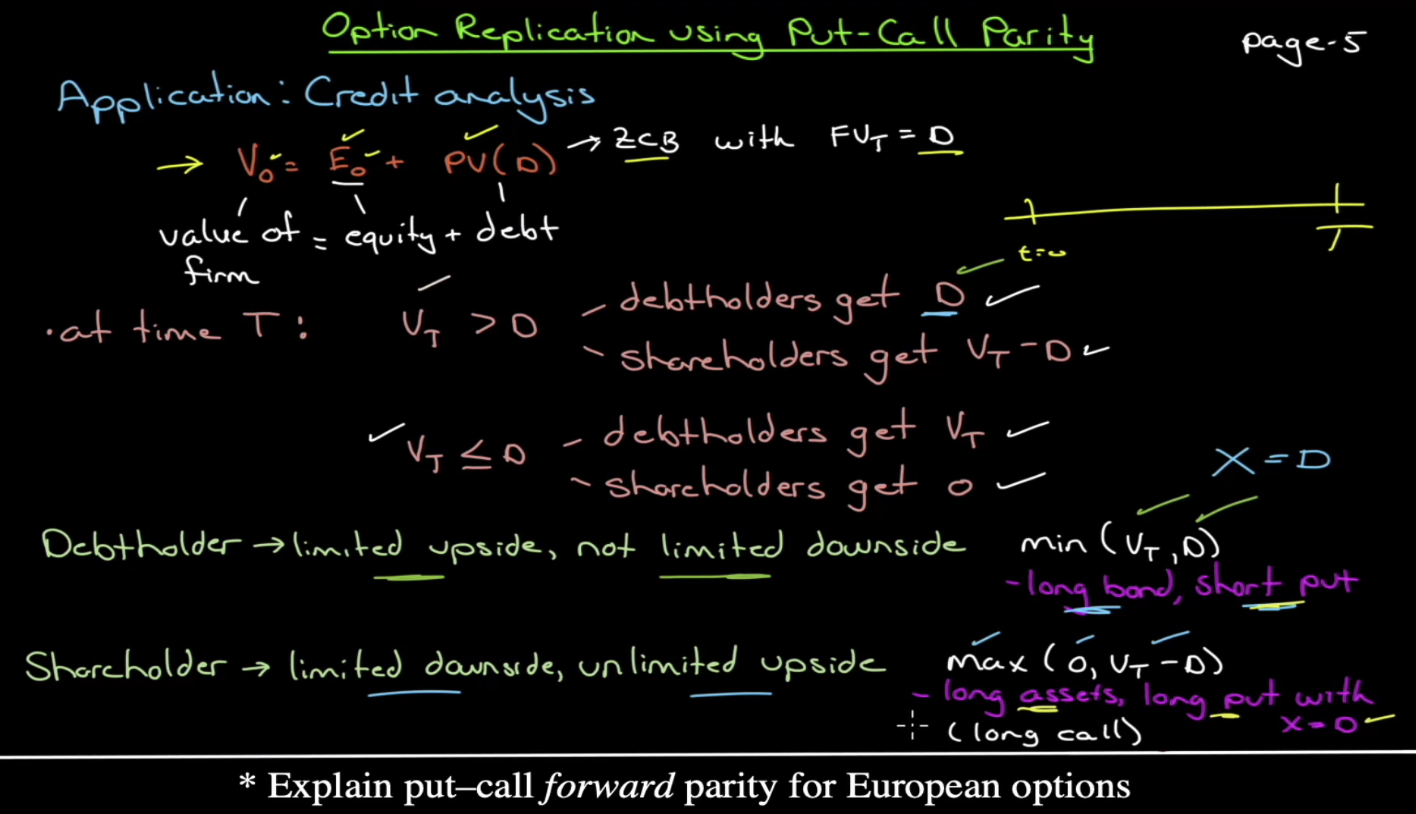 Option Replication using Put-Call Parity
page-5
Application: Credit analysis
→ V₀ = E₀ + PV(D) → ZCB with FV_T = D
value of firm = equity + debt
t=0 T
• at time T: V_T > D - debtholders get D
- shareholders get V_T - D
V_T ≤ D - debtholders get V_T
- shareholders get 0
X = D
Debtholder → limited upside, not limited downside min (V_T, D)
- long bond, short put
Shareholder → limited downside, unlimited upside max (0, V_T - D)
- long assets, long put with X = D
(long call)
* Explain put–call forward parity for European options